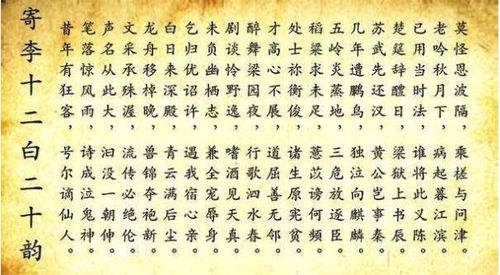 寄李十二白二十韵
昔年有狂客，号尔谪仙人。
笔落惊风雨，诗成泣鬼神。
声名从此大，汩没一朝伸。
文采承殊渥，流传必绝伦。
龙舟移棹晚，兽锦夺袍新。
白日来深殿，青云满后尘。
乞归优诏许，遇我宿心亲。
未负幽栖志，兼全宠辱身。
剧谈怜野逸，嗜酒见天真。
醉舞梁园夜，行歌泗水春。
才高心不展，道屈善无邻。
处士祢衡俊，诸生原宪贫。
稻粱求未足，薏苡谤何频。
五岭炎蒸地，三危放逐臣。
几年遭鹏鸟，独泣向麒麟。
苏武先还汉，黄公岂事秦。
楚筵辞醴日，梁狱上书辰。
已用当时法，谁将此义陈。
老吟秋月下，病起暮江滨。
莫怪恩波隔，乘槎与问津。